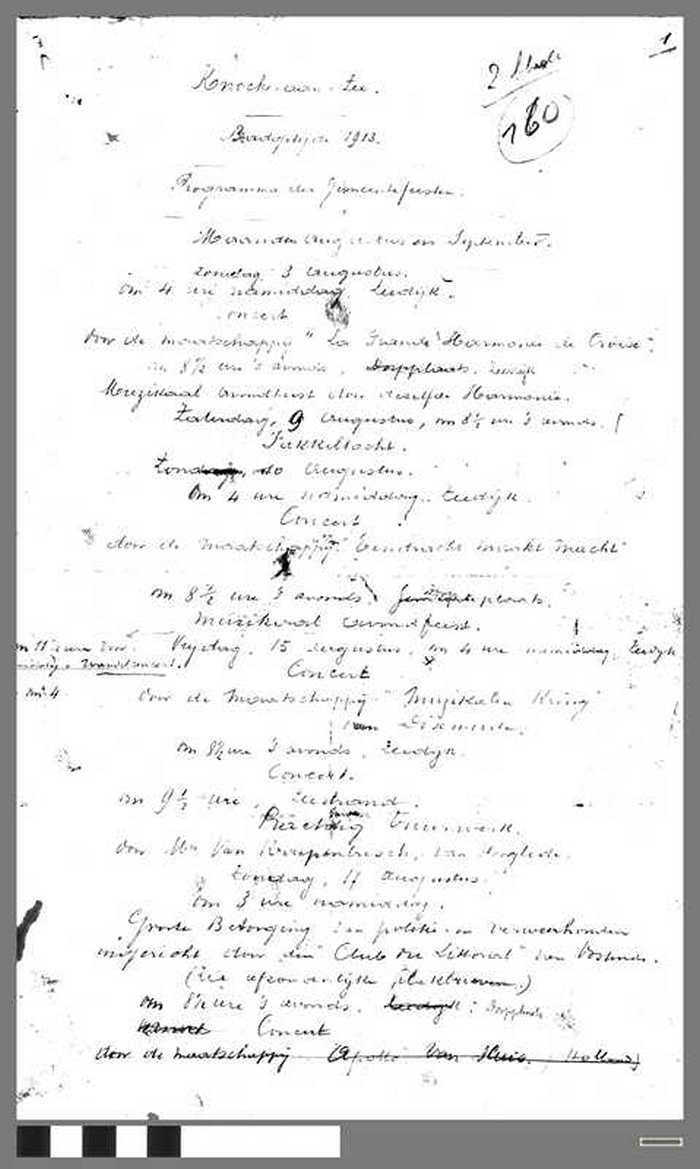 1
2
160
Knocke-aan-Zee.
Badtijd 1913.
Programma der Gemeentefeesten.
Maanden Augustus en September.
Zondag 3 Augustus.
om 4 ure namiddag. Zeedijk.
Concert
door de maatschappij "La Grande Harmonie de
om 8 1/2 ure 's avonds, Dorpplaats. Zeedijk
Muzikaal Avondfeest door dezelfde Harmonie.
Zaterdag, 9 Augustus, om 8 1/2 ure 's avonds.
Fakkeltocht.
Zondag, 10 Augustus.
Om 4 ure namiddag. Zeedijk.
Concert
door de maatschappij "Eendracht maakt macht"
om 8 1/2 ure 's avonds, plaats.
Muzikaal avondfeest.
Vrijdag, 15 Augustus, om 4 ure namiddag, Zeedijk
om 11 ure
Wandelconcert.
Concert
om 4
door de Maatschappij "Muzikalen Kring"
van Dixmude.
om 8 1/2 ure 's avonds, Zeedijk.
Concert.
om 9 1/2 ure, Zeestrand.
Prachtig Vuurwerk.
door Mr Van
Zondag, 17 Augustus.
Om 3 ure namiddag.
Groote Betooging van politie- en
ingericht door den "Club du Littoral" van Oostende.
(Zie afzonderlijke plakbrieven.)
om 8 1/2 ure 's avonds. Zeedijk: Dorpplaats
Concert Concert
door de maatschappij "Apollo" van Sluis. (Holland)